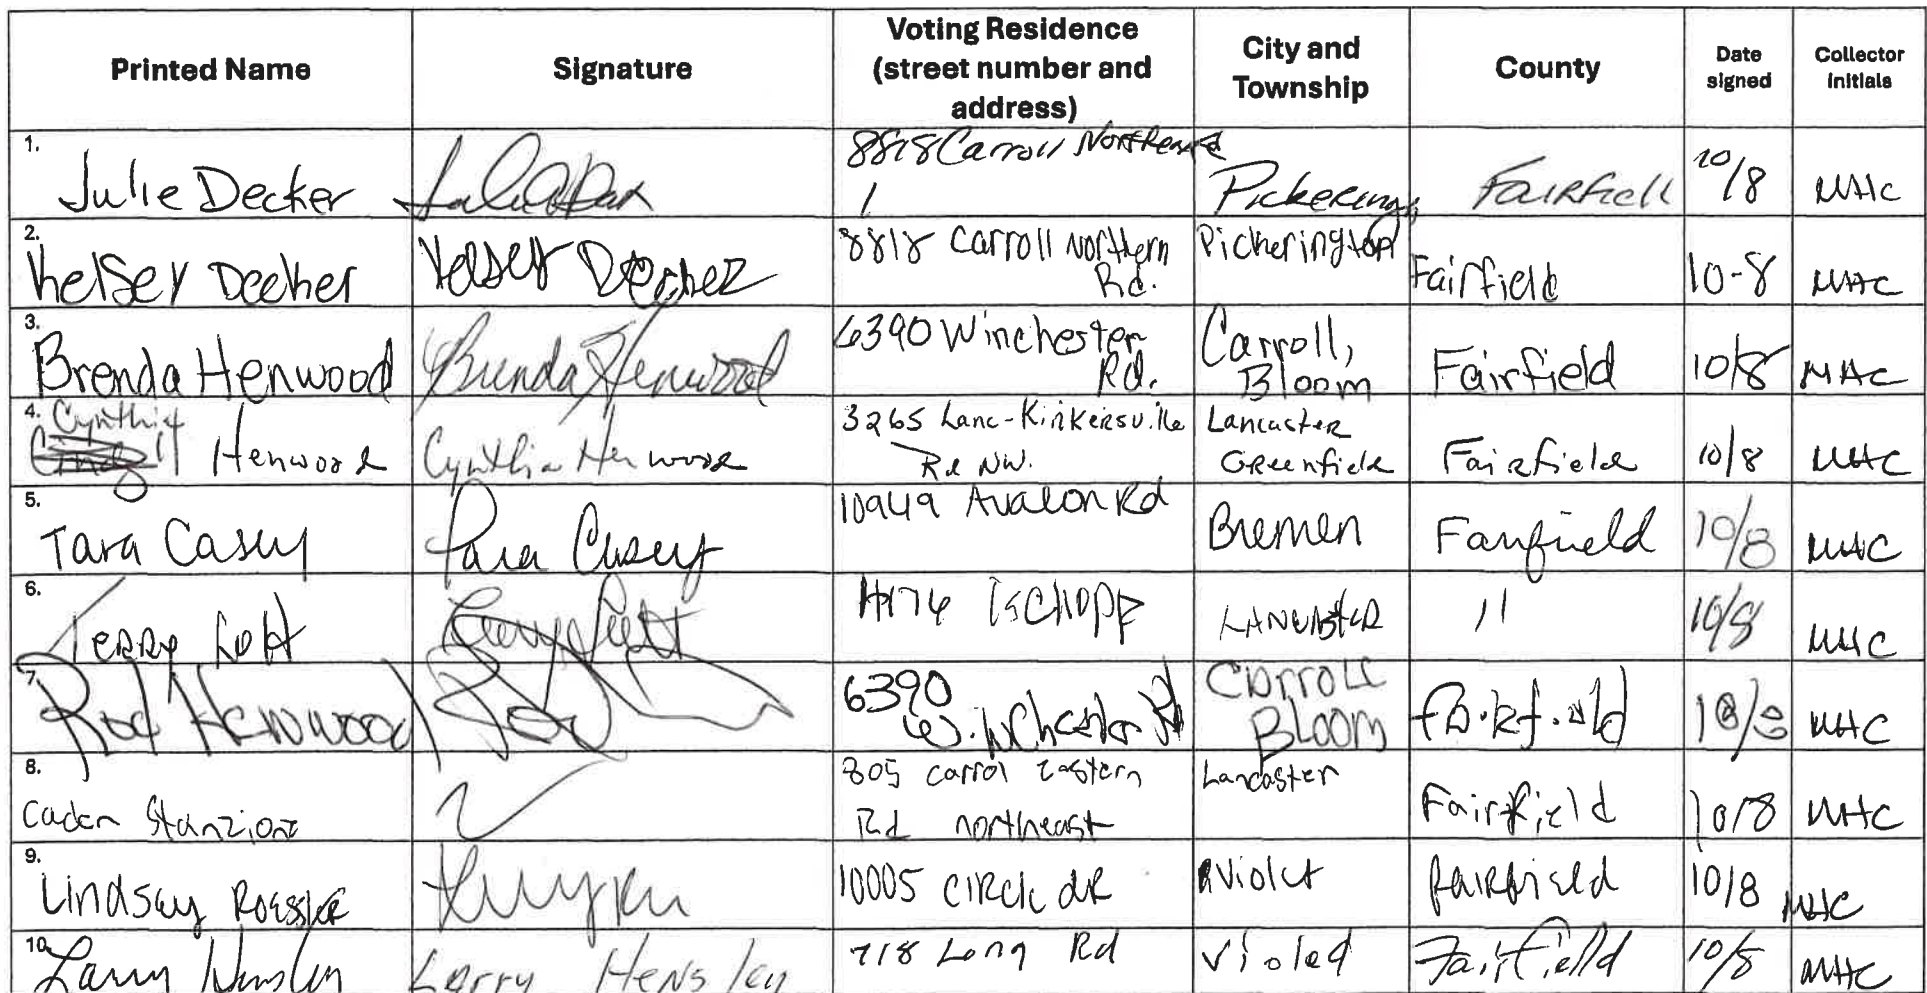 Printed Name
Signature
Voting Residence
(street number and
address)
City and
Township
County
Date
signed
Collector
initials
1.
Julie Decker
8818 Carroll Northern Rd
Pickering
Fairfiell
10/8
MHC
2.
Kelsey Decker
Kelsey Decker
8818 Carroll Northern
Rd.
Pickerington
Fairfield
10-8
MHC
3.
Brenda Henwood
Brenda Henwood
6390 Winchester
Rd.
Carroll,
Bloom
Fairfield
10/8
MHC
4.
Cynthia
Henwood
Cynthia Henwood
3265 Lanc-Kirkersville
Rd NW.
Lancaster
Greenfield
Fairfield
10/8
MHC
5.
Tara Casey
Tara Casey
10949 Avalon Rd
Bremen
Fairfield
10/8
MHC
6.
Terry Lott
Terry Lott
4174 Tschopp
LANCASTER
11
10/8
MHC
7.
Rod Henwood
6390
Winchester Rd
Carroll
Bloom
Fairfield
10/8
MHC
8.
Caden Stanzione
805 Carrol Eastern
Rd northeast
Lancaster
Fairfield
10/8
MHC
9.
Lindsay Roessler
10005 Circle dR
Violet
Fairfield
10/8
MHC
10.
Larry Hensley
Larry Hensley
718 Long Rd
Violed
Fairfielld
10/8
MHC